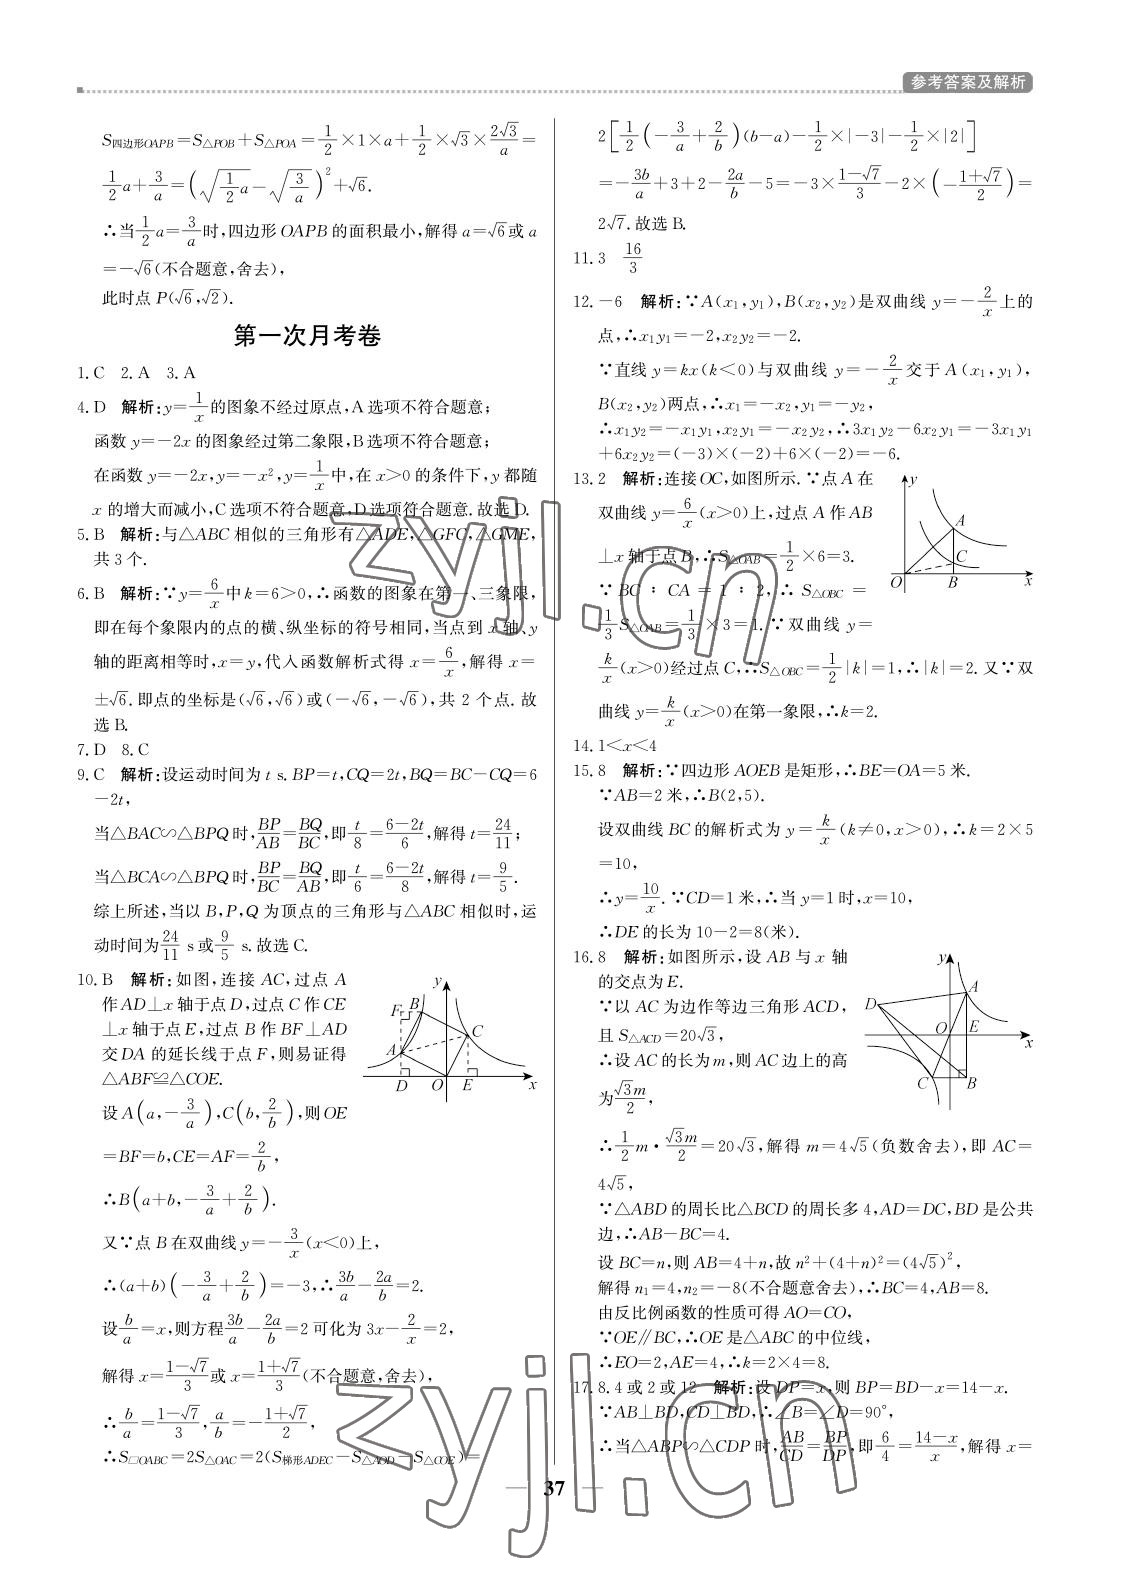 参考答案及解析
S四边形OAPB=S△POB+S△POA=1/2×1×a+1/2×√3×2√3/a=
1/2a+3/a=(√(1/2a)-√(3/a))²+√6.
∴当1/2a=3/a时,四边形OAPB的面积最小,解得a=√6或a
=-√6(不合题意,舍去),
此时点P(√6,√2).
第一次月考卷
1.C 2.A 3.A
4.D 解析:y=1/x的图象不经过原点,A选项不符合题意;
函数y=-2x的图象经过第二象限,B选项不符合题意;
在函数y=-2x,y=-x²,y=1/x中,在x>0的条件下,y都随
x的增大而减小,C选项不符合题意,D选项符合题意.故选D.
5.B 解析:与△ABC相似的三角形有△ADE,△GFC,△GME,
共3个.
6.B 解析:∵y=6/x中k=6>0,∴函数的图象在第一、三象限,
即在每个象限内的点的横、纵坐标的符号相同,当点到x轴、y
轴的距离相等时,x=y,代入函数解析式得x=6/x,解得x=
±√6.即点的坐标是(√6,√6)或(-√6,-√6),共2个点.故
选B.
7.D 8.C
9.C 解析:设运动时间为t s.BP=t,CQ=2t,BQ=BC-CQ=6
-2t,
当△BAC∽△BPQ时,BP/AB=BQ/BC,即t/8=(6-2t)/6,解得t=24/11;
当△BCA∽△BPQ时,BP/BC=BQ/AB,即t/6=(6-2t)/8,解得t=9/5.
综上所述,当以B,P,Q为顶点的三角形与△ABC相似时,运
动时间为24/11 s或9/5 s.故选C.
10.B 解析:如图,连接AC,过点A
作AD⊥x轴于点D,过点C作CE
⊥x轴于点E,过点B作BF⊥AD
交DA的延长线于点F,则易证得
△ABF≌△COE.
设A(a,-3/a),C(b,2/b),则OE
=BF=b,CE=AF=2/b,
∴B(a+b,-3/a+2/b).
又∵点B在双曲线y=-3/x(x<0)上,
∴(a+b)(-3/a+2/b)=-3,∴3b/a-2a/b=2.
设b/a=x,则方程3b/a-2a/b=2可化为3x-2/x=2,
解得x=(1-√7)/3或x=(1+√7)/3(不合题意,舍去),
∴b/a=(1-√7)/3,a/b=-(1+√7)/2,
∴S▱OABC=2S△OAC=2(S梯形ADEC-S△AOD-S△COE)=
y
F
B
C
A
D
O
E
x
2[1/2(-3/a+2/b)(b-a)-1/2×|-3|-1/2×|2|]
=-3b/a+3+2-2a/b-5=-3×(1-√7)/3-2×(-(1+√7)/2)=
2√7.故选B.
11.3 16/3
12.-6 解析:∵A(x₁,y₁),B(x₂,y₂)是双曲线y=-2/x上的
点,∴x₁y₁=-2,x₂y₂=-2.
∵直线y=kx(k<0)与双曲线y=-2/x交于A(x₁,y₁),
B(x₂,y₂)两点,∴x₁=-x₂,y₁=-y₂,
∴x₁y₂=-x₁y₁,x₂y₁=-x₂y₂,∴3x₁y₂-6x₂y₁=-3x₁y₁
+6x₂y₂=(-3)×(-2)+6×(-2)=-6.
13.2 解析:连接OC,如图所示.∵点A在
双曲线y=6/x(x>0)上,过点A作AB
⊥x轴于点B,∴S△OAB=1/2×6=3.
∵BC∶CA=1∶2,∴S△OBC=
1/3S△OAB=1/3×3=1.∵双曲线y=
k/x(x>0)经过点C,∴S△OBC=1/2|k|=1,∴|k|=2.又∵双
曲线y=k/x(x>0)在第一象限,∴k=2.
y
A
C
O
B
x
14.1<x<4
15.8 解析:∵四边形AOEB是矩形,∴BE=OA=5米.
∵AB=2米,∴B(2,5).
设双曲线BC的解析式为y=k/x(k≠0,x>0),∴k=2×5
=10,
∴y=10/x.∵CD=1米,∴当y=1时,x=10,
∴DE的长为10-2=8(米).
16.8 解析:如图所示,设AB与x轴
的交点为E.
∵以AC为边作等边三角形ACD,
且S△ACD=20√3,
∴设AC的长为m,则AC边上的高
为√3m/2,
∴1/2m·√3m/2=20√3,解得m=4√5(负数舍去),即AC=
4√5,
∵△ABD的周长比△BCD的周长多4,AD=DC,BD是公共
边,∴AB-BC=4.
设BC=n,则AB=4+n,故n²+(4+n)²=(4√5)²,
解得n₁=4,n₂=-8(不合题意舍去),∴BC=4,AB=8.
由反比例函数的性质可得AO=CO,
∵OE∥BC,∴OE是△ABC的中位线,
∴EO=2,AE=4,∴k=2×4=8.
y
A
D
O
E
x
C
B
17.8.4或2或12 解析:设DP=x,则BP=BD-x=14-x.
∵AB⊥BD,CD⊥BD,∴∠B=∠D=90°,
∴当△ABP∽△CDP时,AB/CD=BP/DP,即6/4=(14-x)/x,解得x=
37
zyjl.cn
zyjl.cn